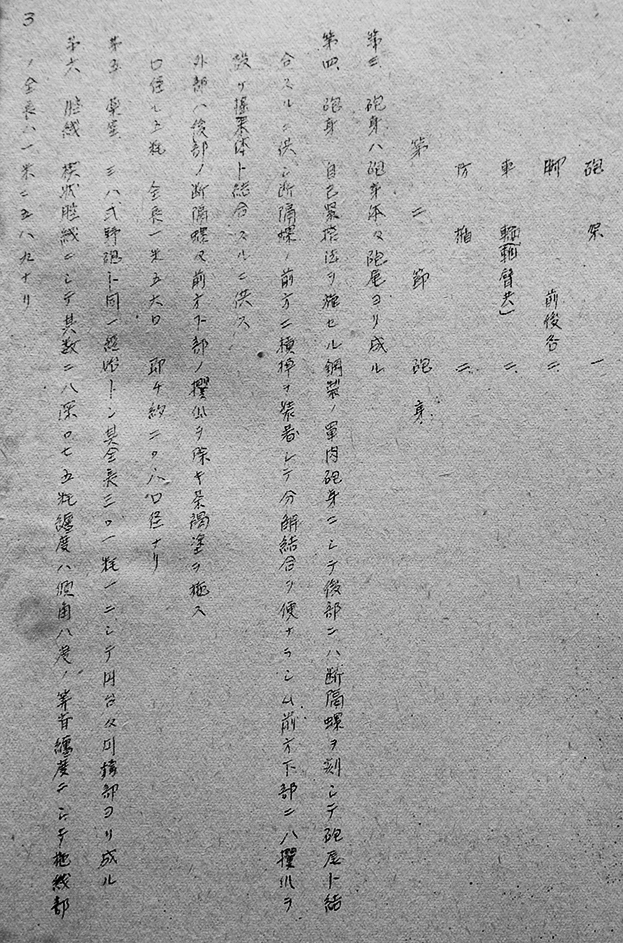 砲架 一
脚 前後各 二
車輪(輪臂共) 二
防楯 二
第二節 砲身
第三 砲身ハ砲身体及砲尾ヨリ成ル
第四 砲身 自己緊搾法ヲ施セル鋼製ノ単肉砲身ニシテ後部ニハ断隔螺ヲ刻シテ砲尾ト結
合スルニ供シ断隔螺ノ前方ニ横桿ヲ装着シテ分解結合ヲ便ナラシム前方下部ニハ攫爪ヲ
設ケ揺架体ト結合スルニ供ス
外部ハ後部ノ断隔螺及前方下部ノ攫爪ヲ除キ茶褐塗ヲ施ス
口径七五粍 全長一米五六〇 即チ約二〇.八口径ナリ
第五 薬室 三八式野砲ト同一 ニシテ其全長三〇一粍一ニシテ円台及円 部ヨリ成ル
第六 腔綫 楔状腔綫ニシテ其数二八深〇.七五粍纏度ハ傾角八度ノ等斉纏度ニシテ施綫部
ノ全長ハ一米二五八九ナリ
3